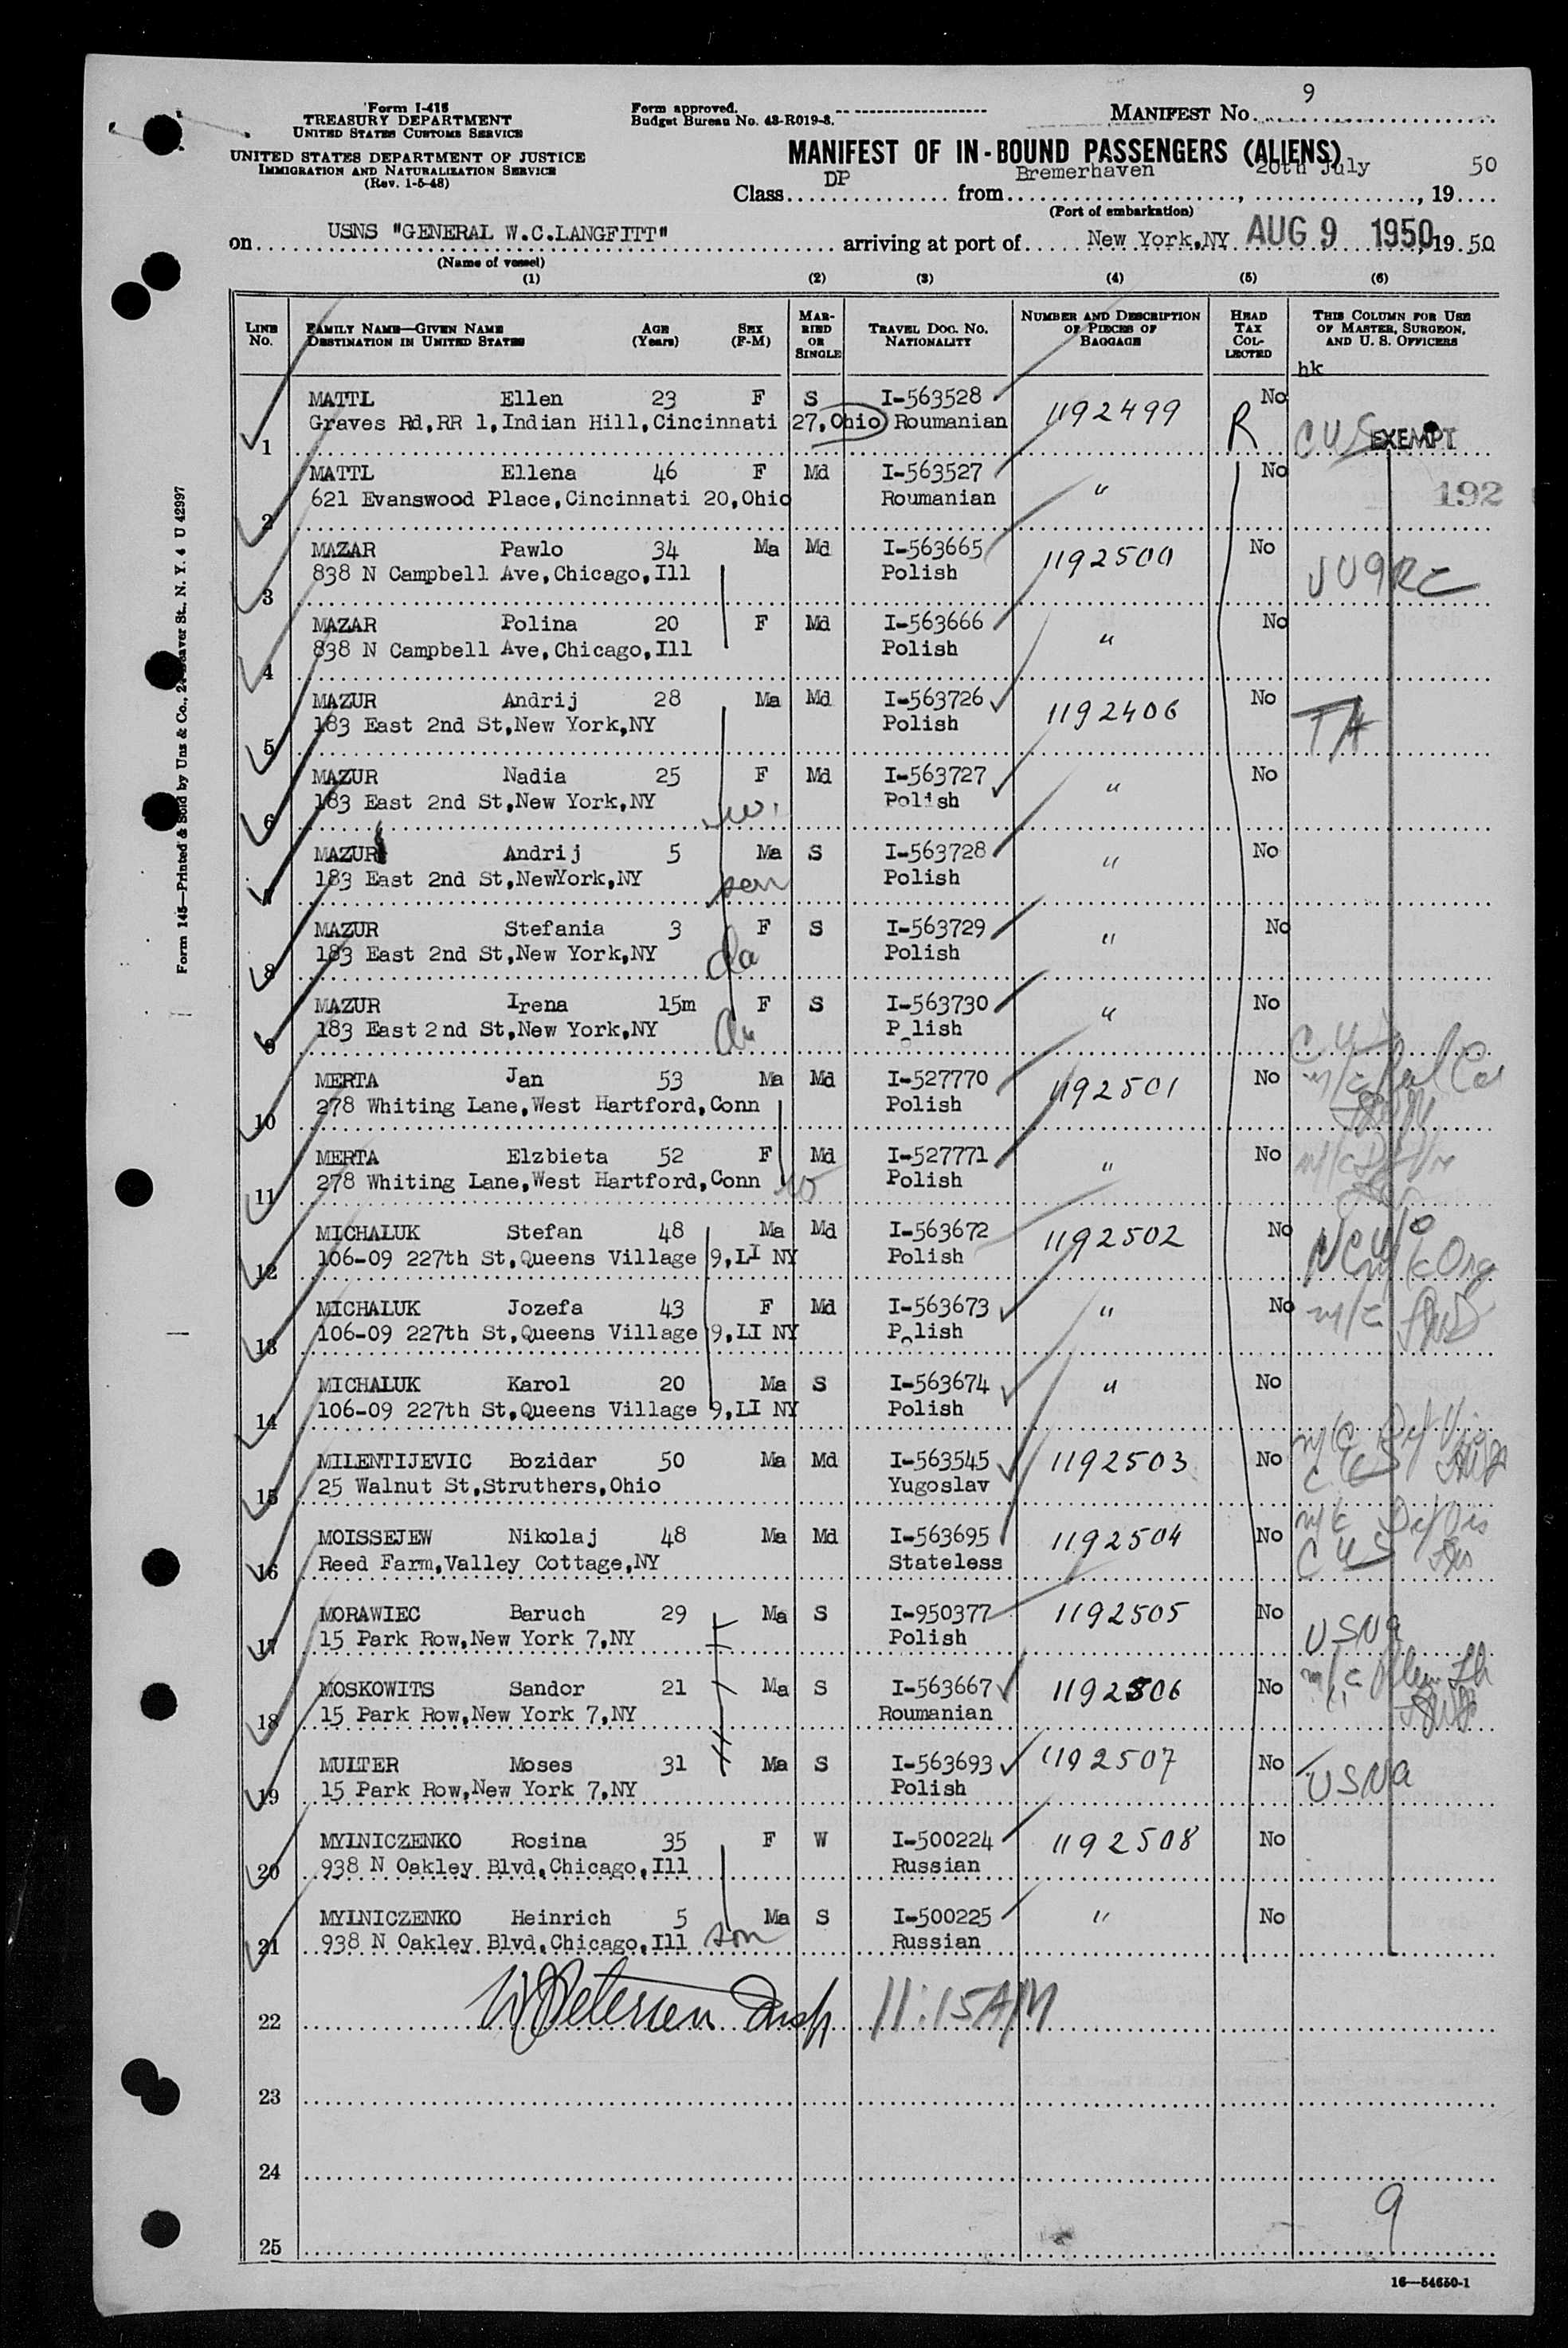 Form I-415
TREASURY DEPARTMENT
UNITED STATES CUSTOMS SERVICE
UNITED STATES DEPARTMENT OF JUSTICE
IMMIGRATION AND NATURALIZATION SERVICE
(Rev. 1-5-48)
Form approved.
Budget Bureau No. 43-R019-3.
MANIFEST No. 9
MANIFEST OF IN-BOUND PASSENGERS (ALIENS)
Class DP from Bremerhaven, 20th July, 19 50
(Port of embarkation)
on USNS "GENERAL W.C.LANGFITT" arriving at port of New York,NY AUG 9 1950, 19 50
(Name of vessel)
(1) (2) (3) (4) (5) (6)
LINE No. FAMILY NAME—GIVEN NAME DESTINATION IN UNITED STATES AGE (Years) SEX (F-M) MARRIED OR SINGLE TRAVEL DOC. NO. NATIONALITY NUMBER AND DESCRIPTION OF PIECES OF BAGGAGE HEAD TAX COLLECTED THIS COLUMN FOR USE OF MASTER, SURGEON, AND U. S. OFFICERS
hk
MATTL Ellen 23 F S I-563528 1192499 No
1 Graves Rd,RR 1,Indian Hill,Cincinnati 27,Ohio Roumanian R CUS EXEMPT
MATTL Ellena 46 F Md I-563527 " No
2 621 Evanswood Place,Cincinnati 20,Ohio Roumanian 192
MAZAR Pawlo 34 Ma Md I-563665 1192500 No
3 838 N Campbell Ave,Chicago,Ill Polish
MAZAR Polina 20 F Md I-563666 " No
4 838 N Campbell Ave,Chicago,Ill Polish
MAZUR Andrij 28 Ma Md I-563726 1192406 No
5 183 East 2nd St,New York,NY Polish
MAZUR Nadia 25 F Md I-563727 " No
6 183 East 2nd St,New York,NY w. Polish
MAZUR Andrij 5 Ma S I-563728 " No
7 183 East 2nd St,NewYork,NY son Polish
MAZUR Stefania 3 F S I-563729 " No
8 183 East 2nd St,New York,NY da Polish
MAZUR Irena 15m F S I-563730 " No
9 183 East 2nd St,New York,NY da Polish
MERTA Jan 53 Ma Md I-527770 1192501 No
10 278 Whiting Lane,West Hartford,Conn Polish
MERTA Elzbieta 52 F Md I-527771 " No
11 278 Whiting Lane,West Hartford,Conn w Polish
MICHALUK Stefan 48 Ma Md I-563672 1192502 No
12 106-09 227th St,Queens Village 9,LI NY Polish
MICHALUK Jozefa 43 F Md I-563673 " No
13 106-09 227th St,Queens Village 9,LI NY Polish
MICHALUK Karol 20 Ma S I-563674 " No
14 106-09 227th St,Queens Village 9,LI NY Polish
MILENTIJEVIC Bozidar 50 Ma Md I-563545 1192503 No
15 25 Walnut St,Struthers,Ohio Yugoslav
MOISSEJEW Nikolaj 48 Ma Md I-563695 1192504 No
16 Reed Farm,Valley Cottage,NY Stateless
MORAWIEC Baruch 29 Ma S I-950377 1192505 No
17 15 Park Row,New York 7,NY Polish USNa
MOSKOWITS Sandor 21 Ma S I-563667 1192506 No
18 15 Park Row,New York 7,NY Roumanian
MULTER Moses 31 Ma S I-563693 1192507 No
19 15 Park Row,New York 7,NY Polish USNa
MYLNICZENKO Rosina 35 F W I-500224 1192508 No
20 938 N Oakley Blvd,Chicago,Ill Russian
MYLNICZENKO Heinrich 5 Ma S I-500225 " No
21 938 N Oakley Blvd,Chicago,Ill son Russian
22 W Petersen Insp 11:15AM
23
24
9
25
16—54650-1
Form 145—Printed & Sold by Unz & Co., 24 Beaver St., N. Y. 4 U 42997